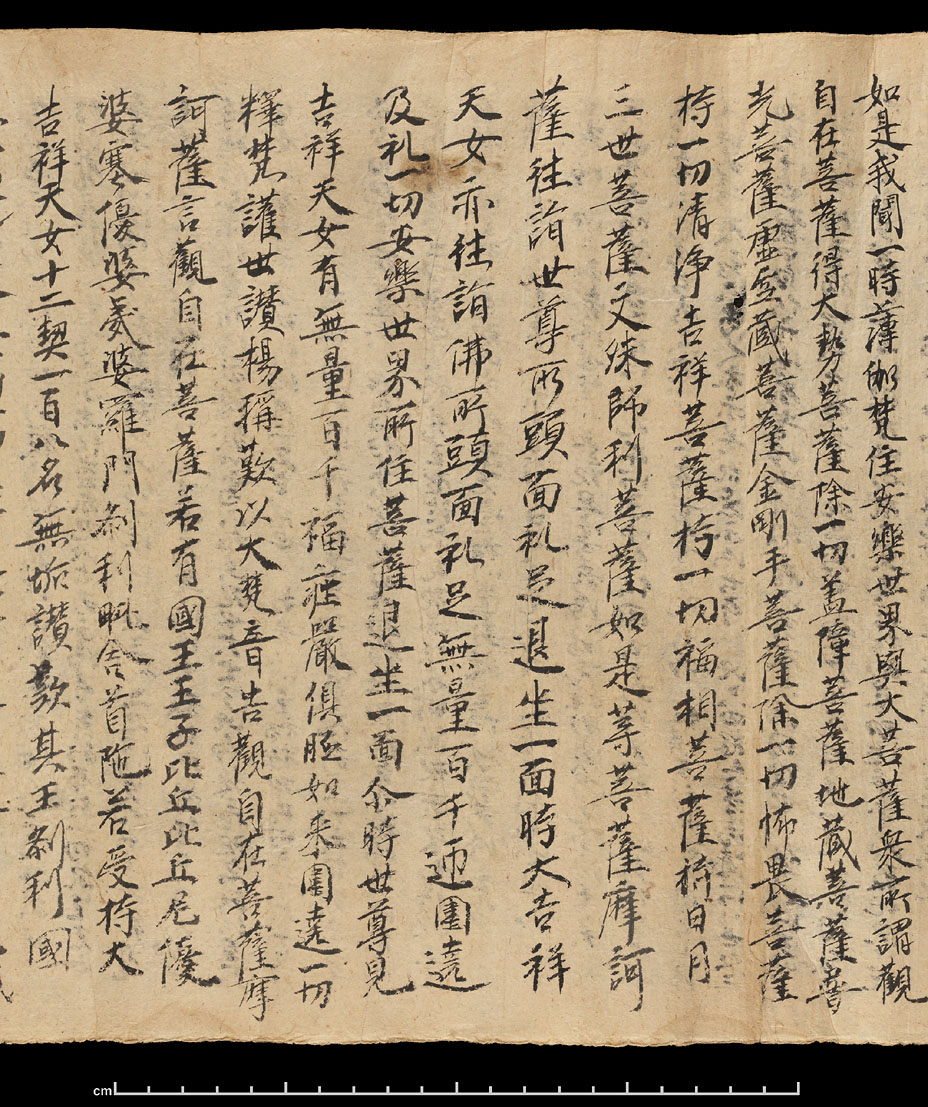 如是我聞一時薄伽梵住安樂世界與大菩薩衆所謂觀
自在菩薩得大勢菩薩除一切盖障菩薩地藏菩薩普
光菩薩虛空藏菩薩金剛手菩薩除一切怖畏菩薩
持一切清淨吉祥菩薩持一切福相菩薩持日月
三世菩薩文殊師利菩薩如是等菩薩摩訶
薩往詣世尊所頭面礼足退坐一面時大吉祥
天女亦往詣佛所頭面礼足無量百千迊圍遶
及礼一切安樂世界所住菩薩退坐一面尒時世尊見
吉祥天女有無量百千福莊嚴俱胝如来圍遶一切
釋梵護世讃揚稱歎以大梵音告觀自在菩薩摩
訶薩言觀自在菩薩若有國王王子比丘比丘尼優
婆塞優婆夷婆羅門刹利毗舍首陁若受持大
吉祥天女十二契一百八名無垢讃歎其王刹利國